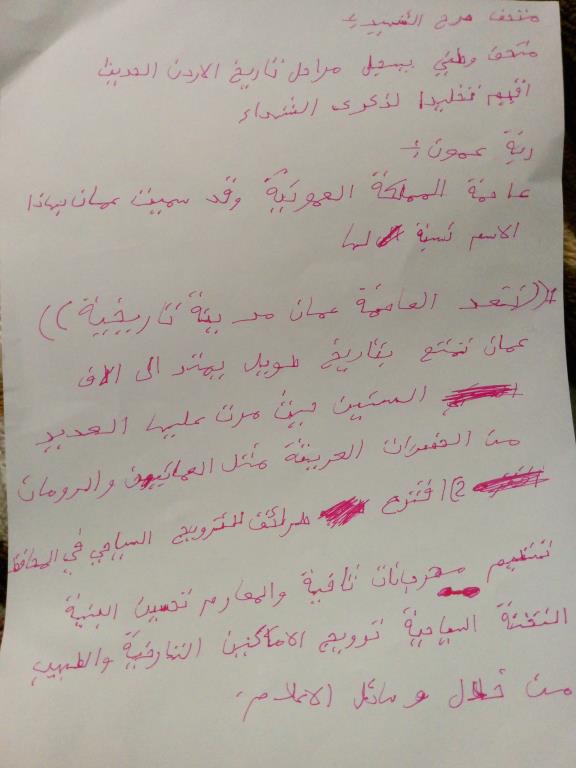 متحف صرح الشهيد :-
متحف وطني يسجل مراحل تاريخ الاردن الحديث
اقيم تخليدا لذكرى الشهداء
ربة عمون :-
عاصمة المملكة العمونية وقد سميت عمان بهذا
الاسم نسبة لها
((تعد العاصمة عمان مدينة تاريخية))
عمان تتمتع بتاريخ طويل يمتد الى الاف
السنين حيث مرت عليها العديد
من الحضارات العريقة مثل والرومان
2) اقترح طرائف للترويج السياحي في المحافظة
تنظيم مهرجانات ثقافية والمعارض تحسين البنية
السياحية ترويج الاماكن التاريخية
من خلال وسائل الاعلام.